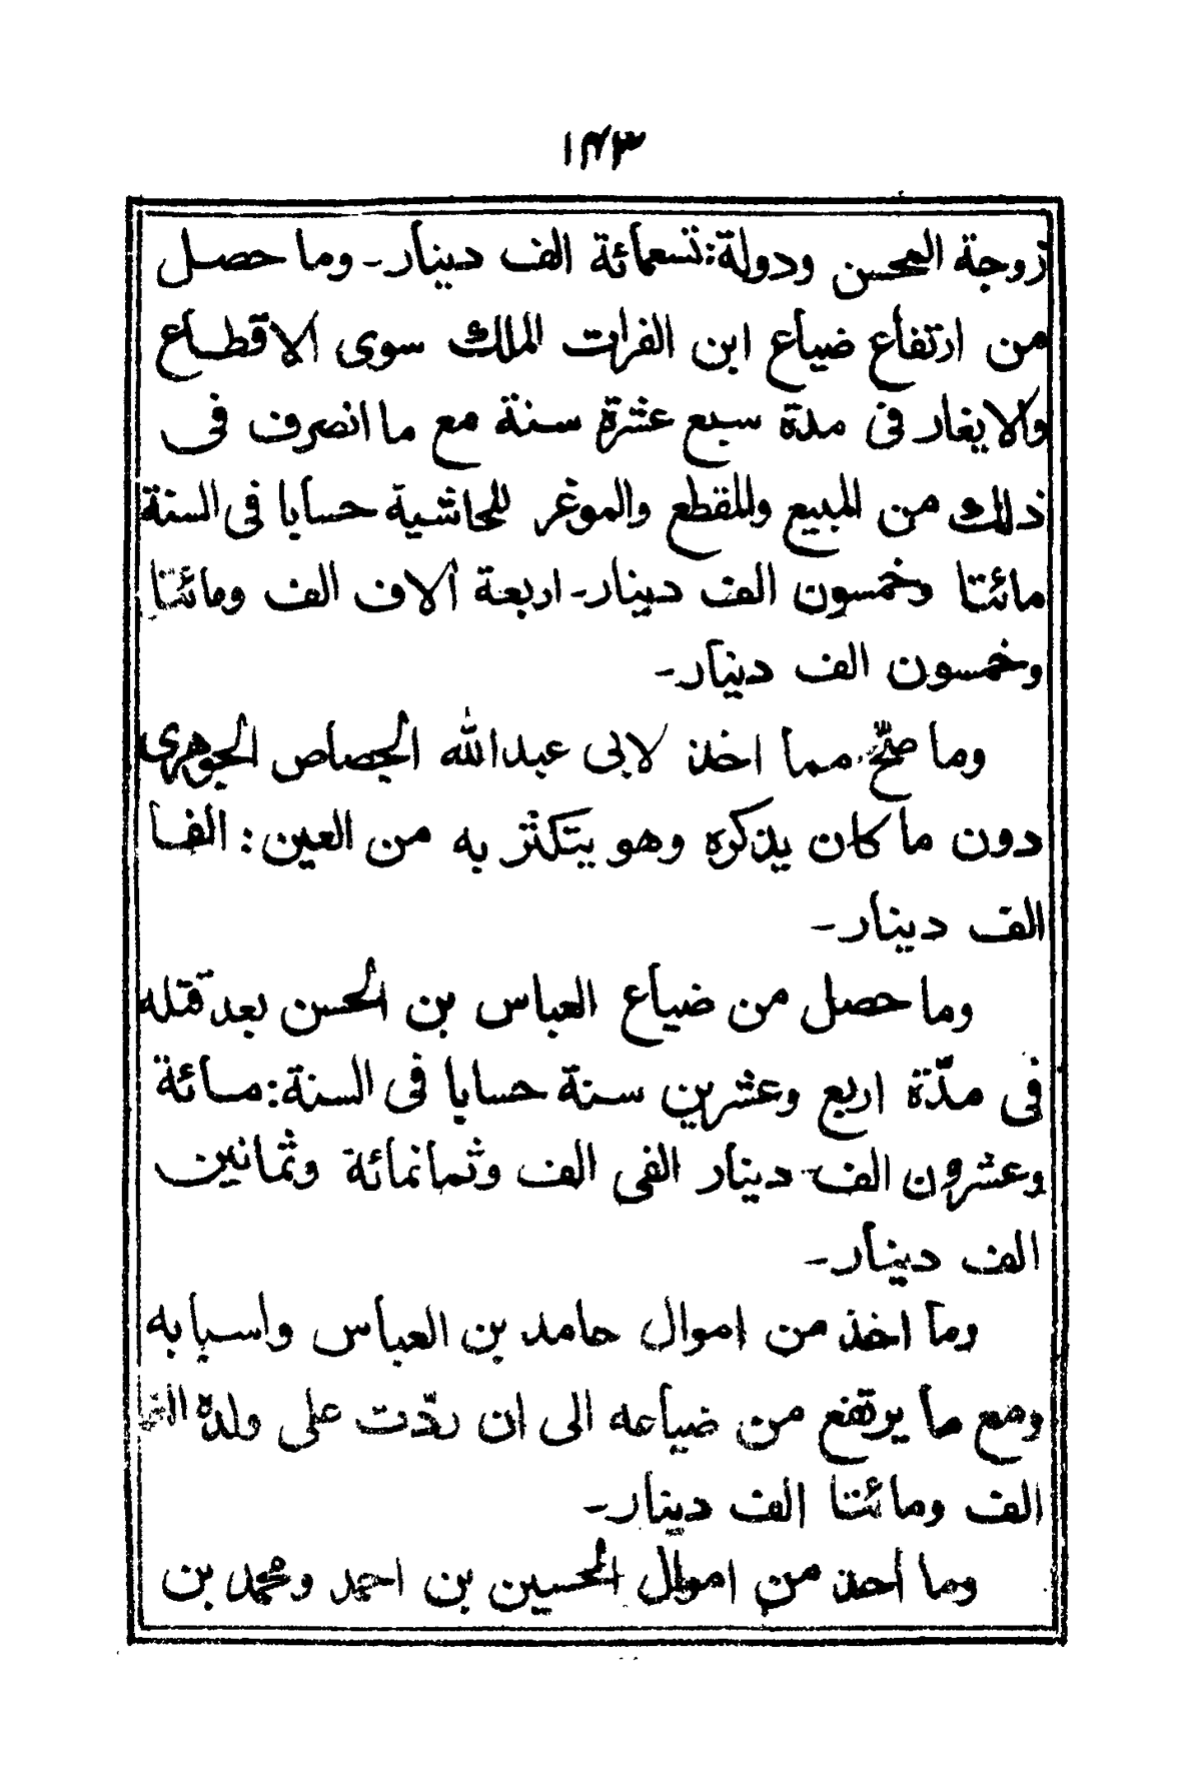 ١٤٣
زوجة المحسن ودولة: تسعمائة الف دينار۔ وما حصل
من ارتفاع ضياع ابن الفرات الملك سوى الاقطاع
والايغار فى مدة سبع عشرة سنة مع ما انصرف فى
ذلك من المبيع والمقطع والموغر للحاشية حسابا فى السنة
مائتا وخمسون الف دينار۔ اربعة آلاف الف ومائتا
وخمسون الف دينار۔
وما صحّ مما اخذ لابى عبدالله الجصاص الجوهرى
دون ما كان يذكره وهو يتكثر به من العين: الفا
الف دينار۔
وما حصل من ضياع العباس بن الحسن بعد قتله
فى مدّة اربع وعشرين سنة حسابا فى السنة: مائة
وعشرون الف دينار الفى الف وثمانمائة وثمانين
الف دينار۔
وما اخذ من اموال حامد بن العباس واسبابه
ومع ما يرتفع من ضياعه الى ان ردّت على ولده الفا
الف ومائتا الف دينار۔
وما أخذ من اموال الحسين بن احمد ومحمد بن